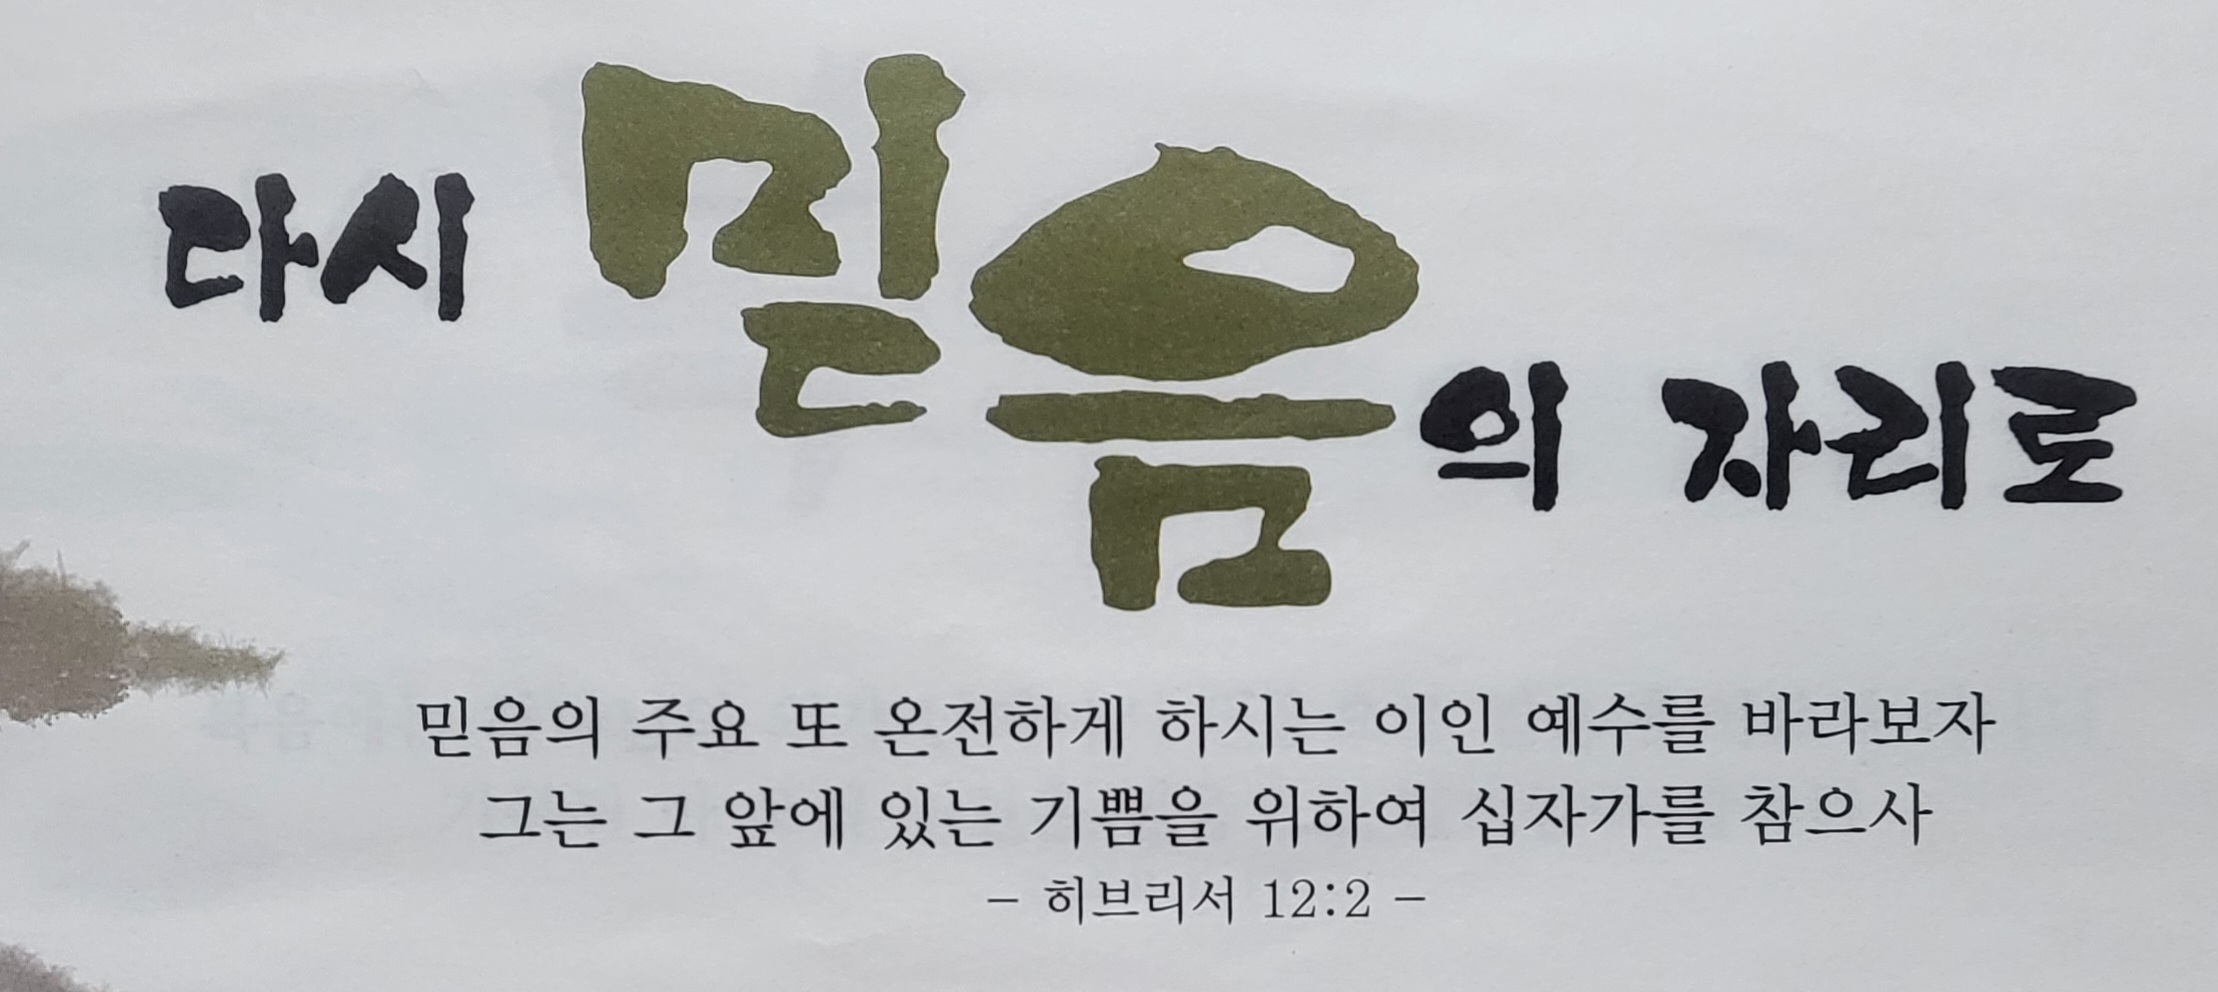 다시 믿음의 자리로
믿음의 주요 또 온전하게 하시는 이인 예수를 바라보자
그는 그 앞에 있는 기쁨을 위하여 십자가를 참으사
- 히브리서 12:2 -